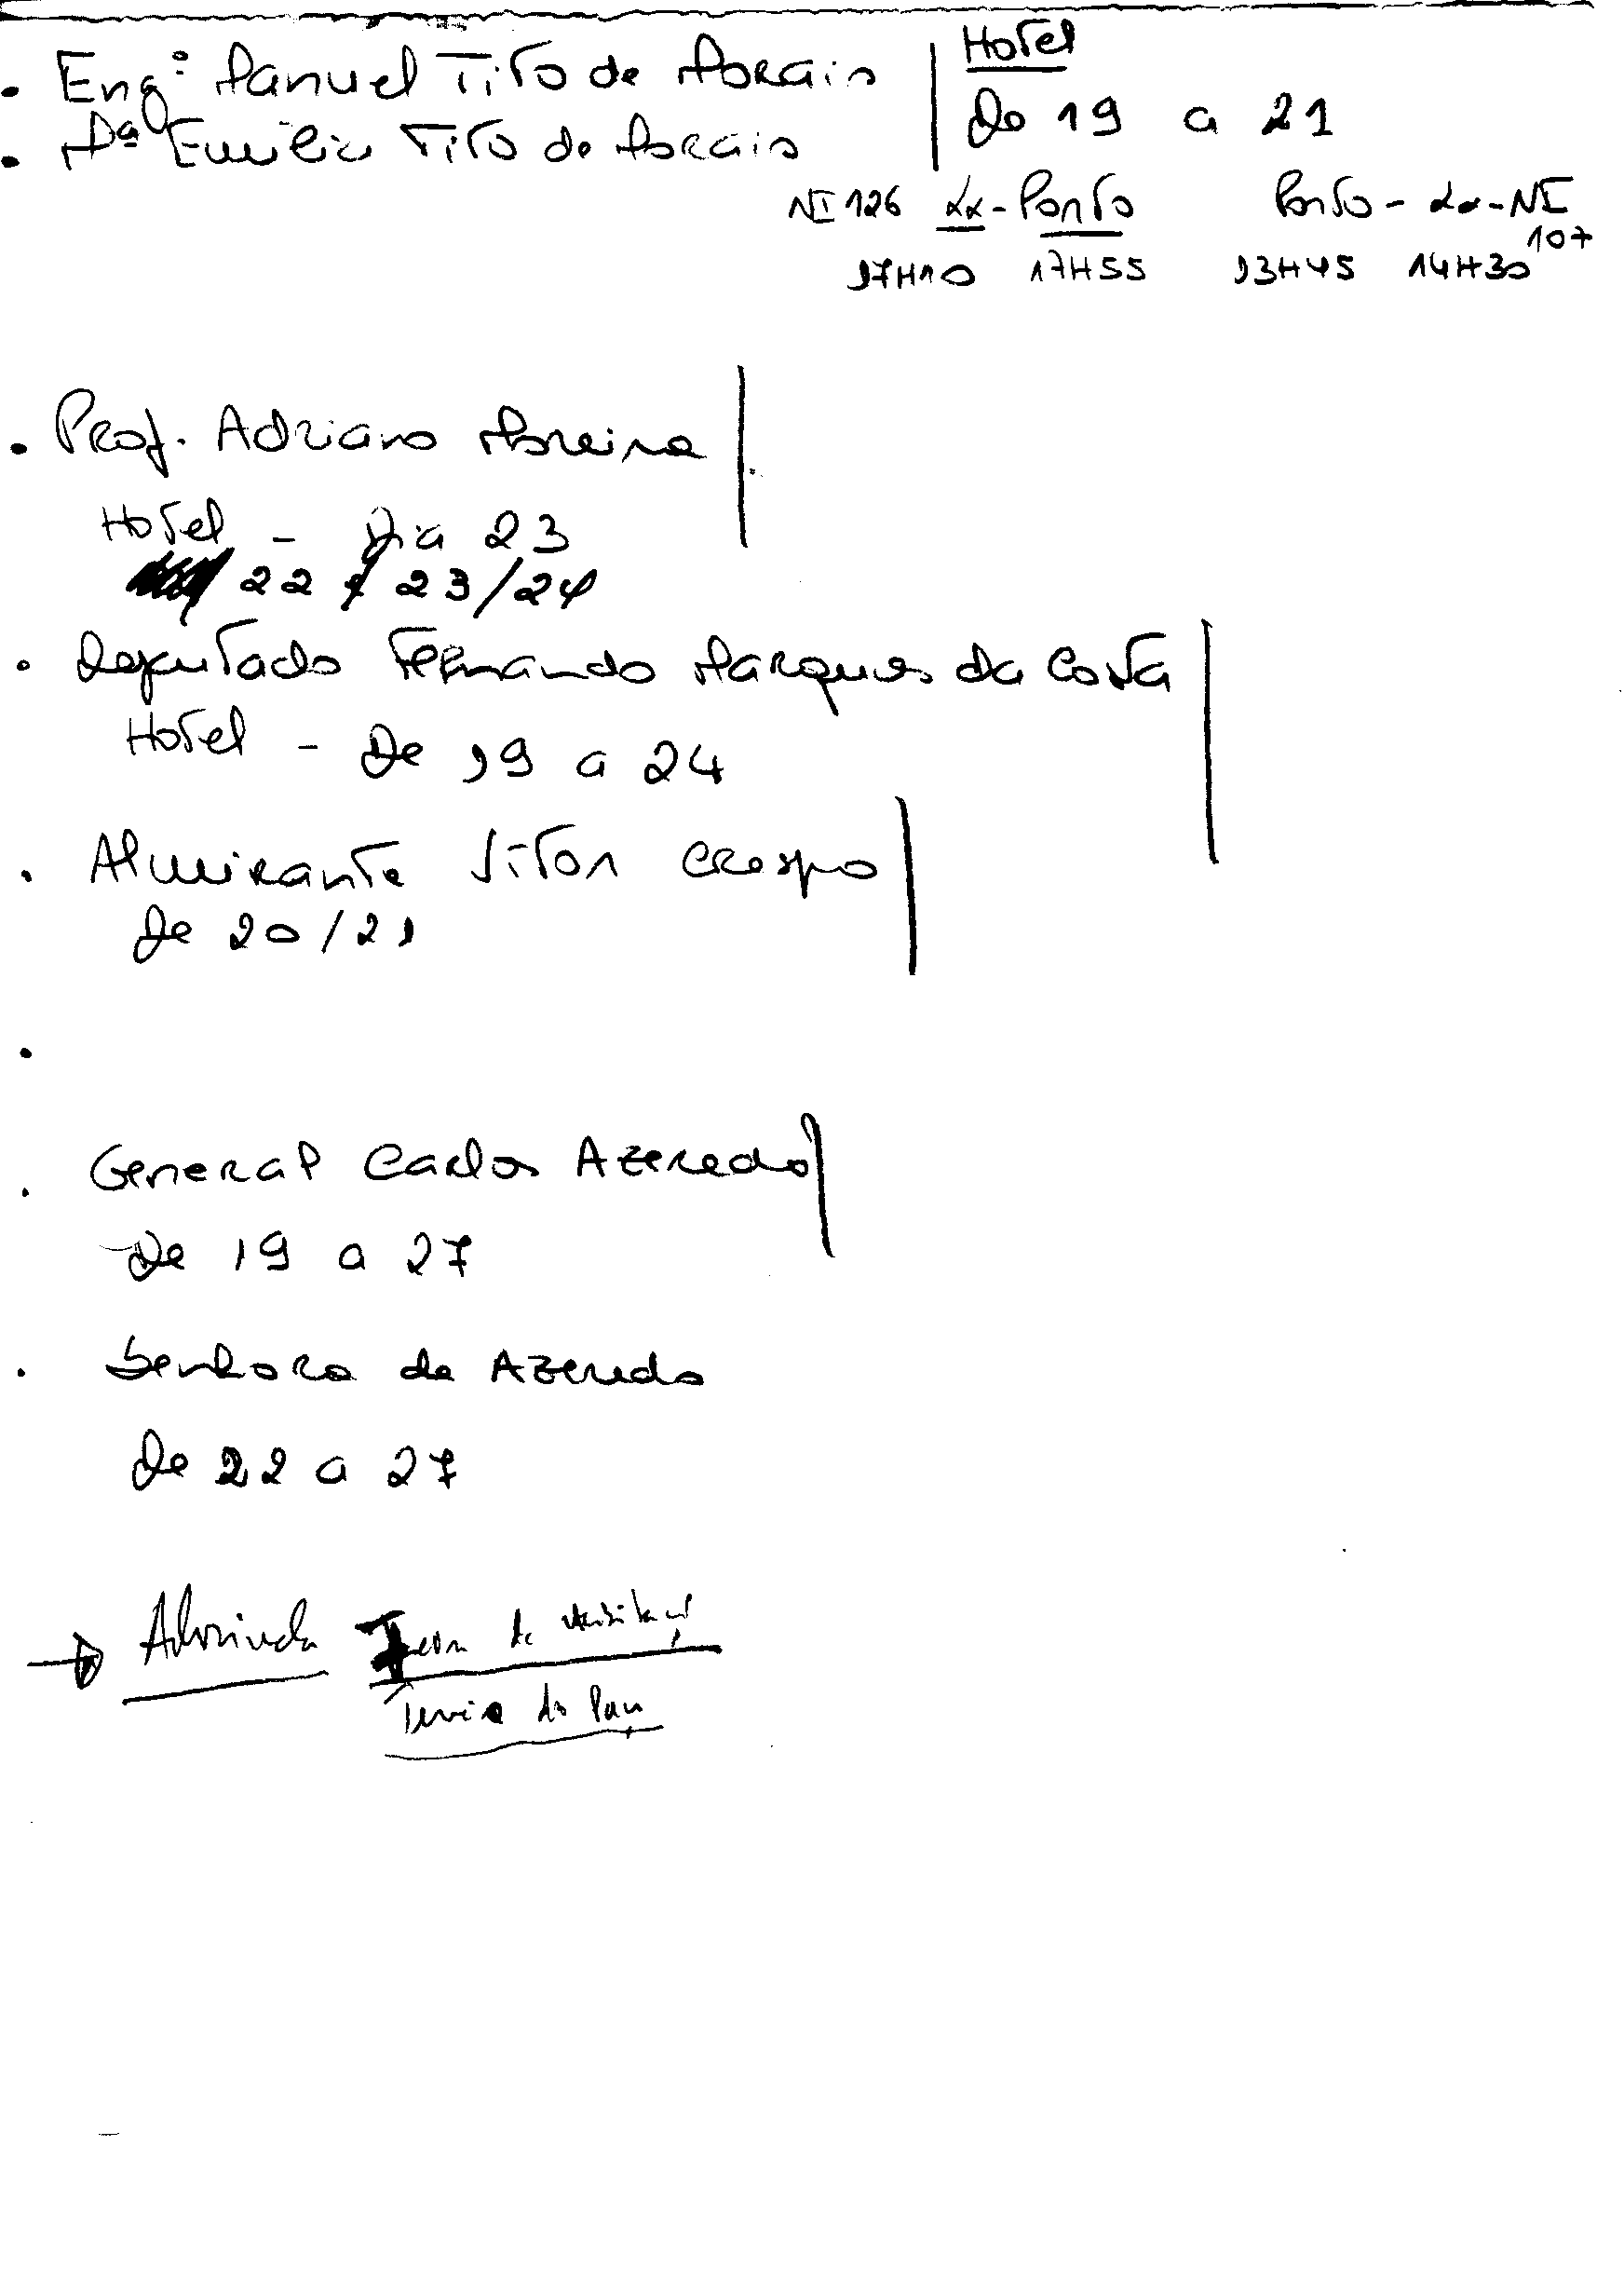 • Engº Manuel Tito de Morais | Hotel
• Mª Emília Tito de Morais | De 19 a 21
NI 126 Lx-Porto Porto-Lx-NI 107
17H10 17H55 13H45 14H30
• Prof. Adriano Moreira
Hotel - Dia 23
22 / 23/24
• Deputado Fernando Marques da Costa
Hotel - De 19 a 24
• Almirante Vitor Crespo
De 20/21
•
• General Carlos Azeredo
De 19 a 27
• Senhora de Azeredo
De 22 a 27
→
do